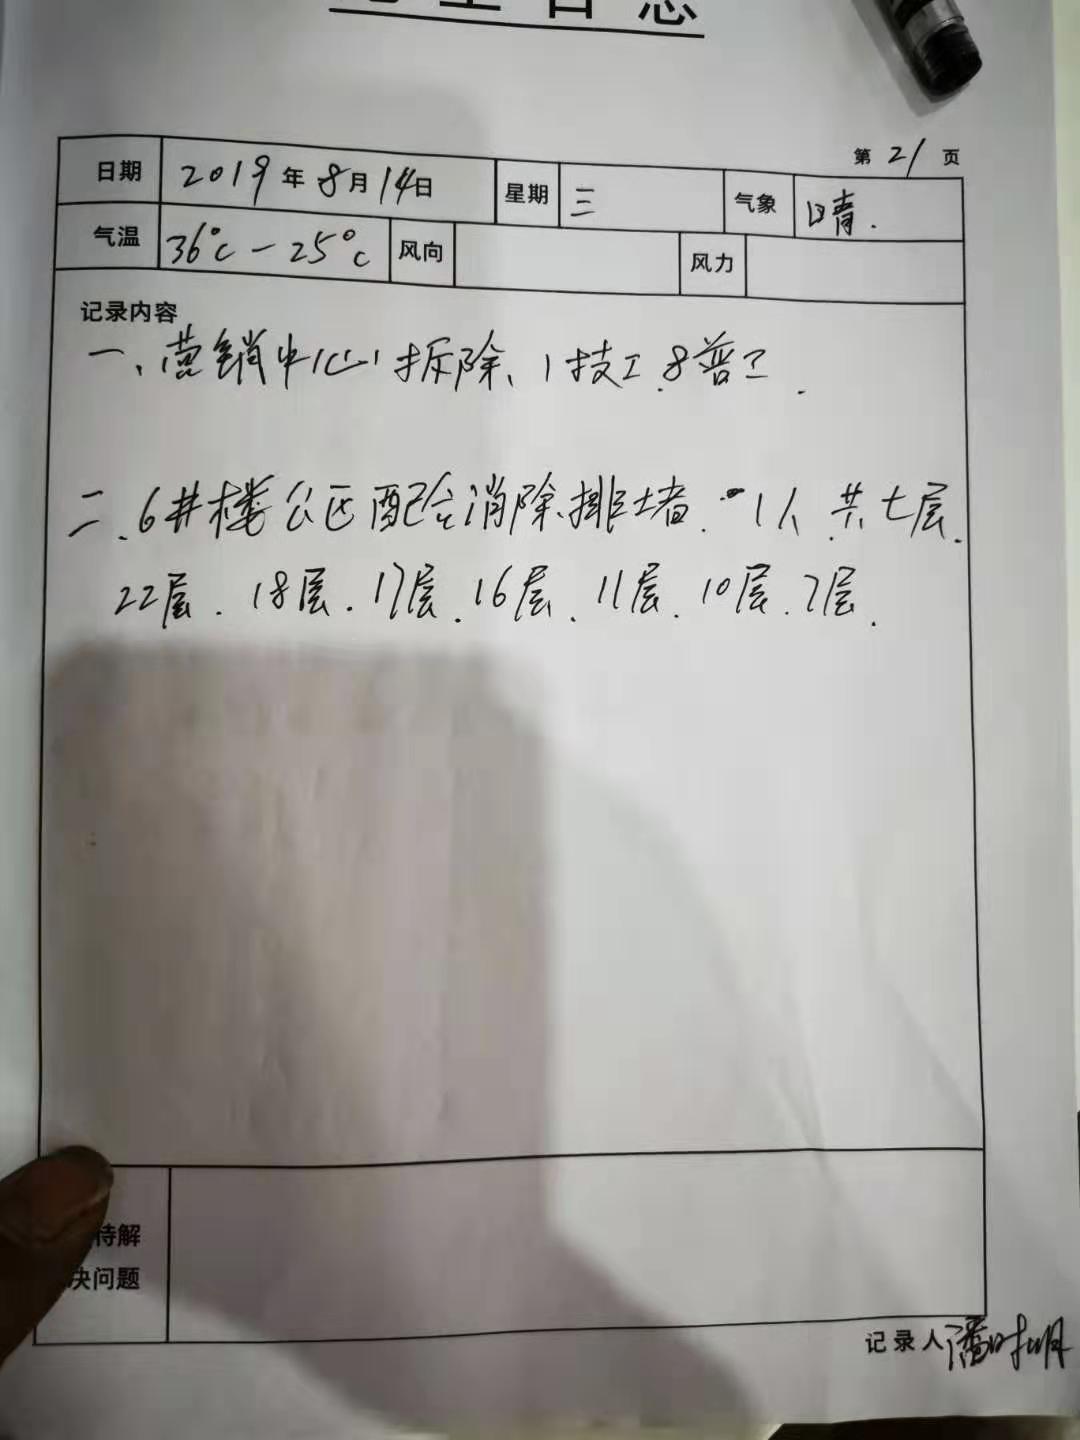 第21页
日期 2019年8月14日 星期 三 气象 晴.
气温 36℃-25℃ 风向 风力
记录内容
一、营销中心拆除、1技工.8普工.
二.6井楼公区配合消除.排堵.1人.共七层.
22层.18层.17层.16层.11层.10层.7层.
待解
决问题
记录人潘时明